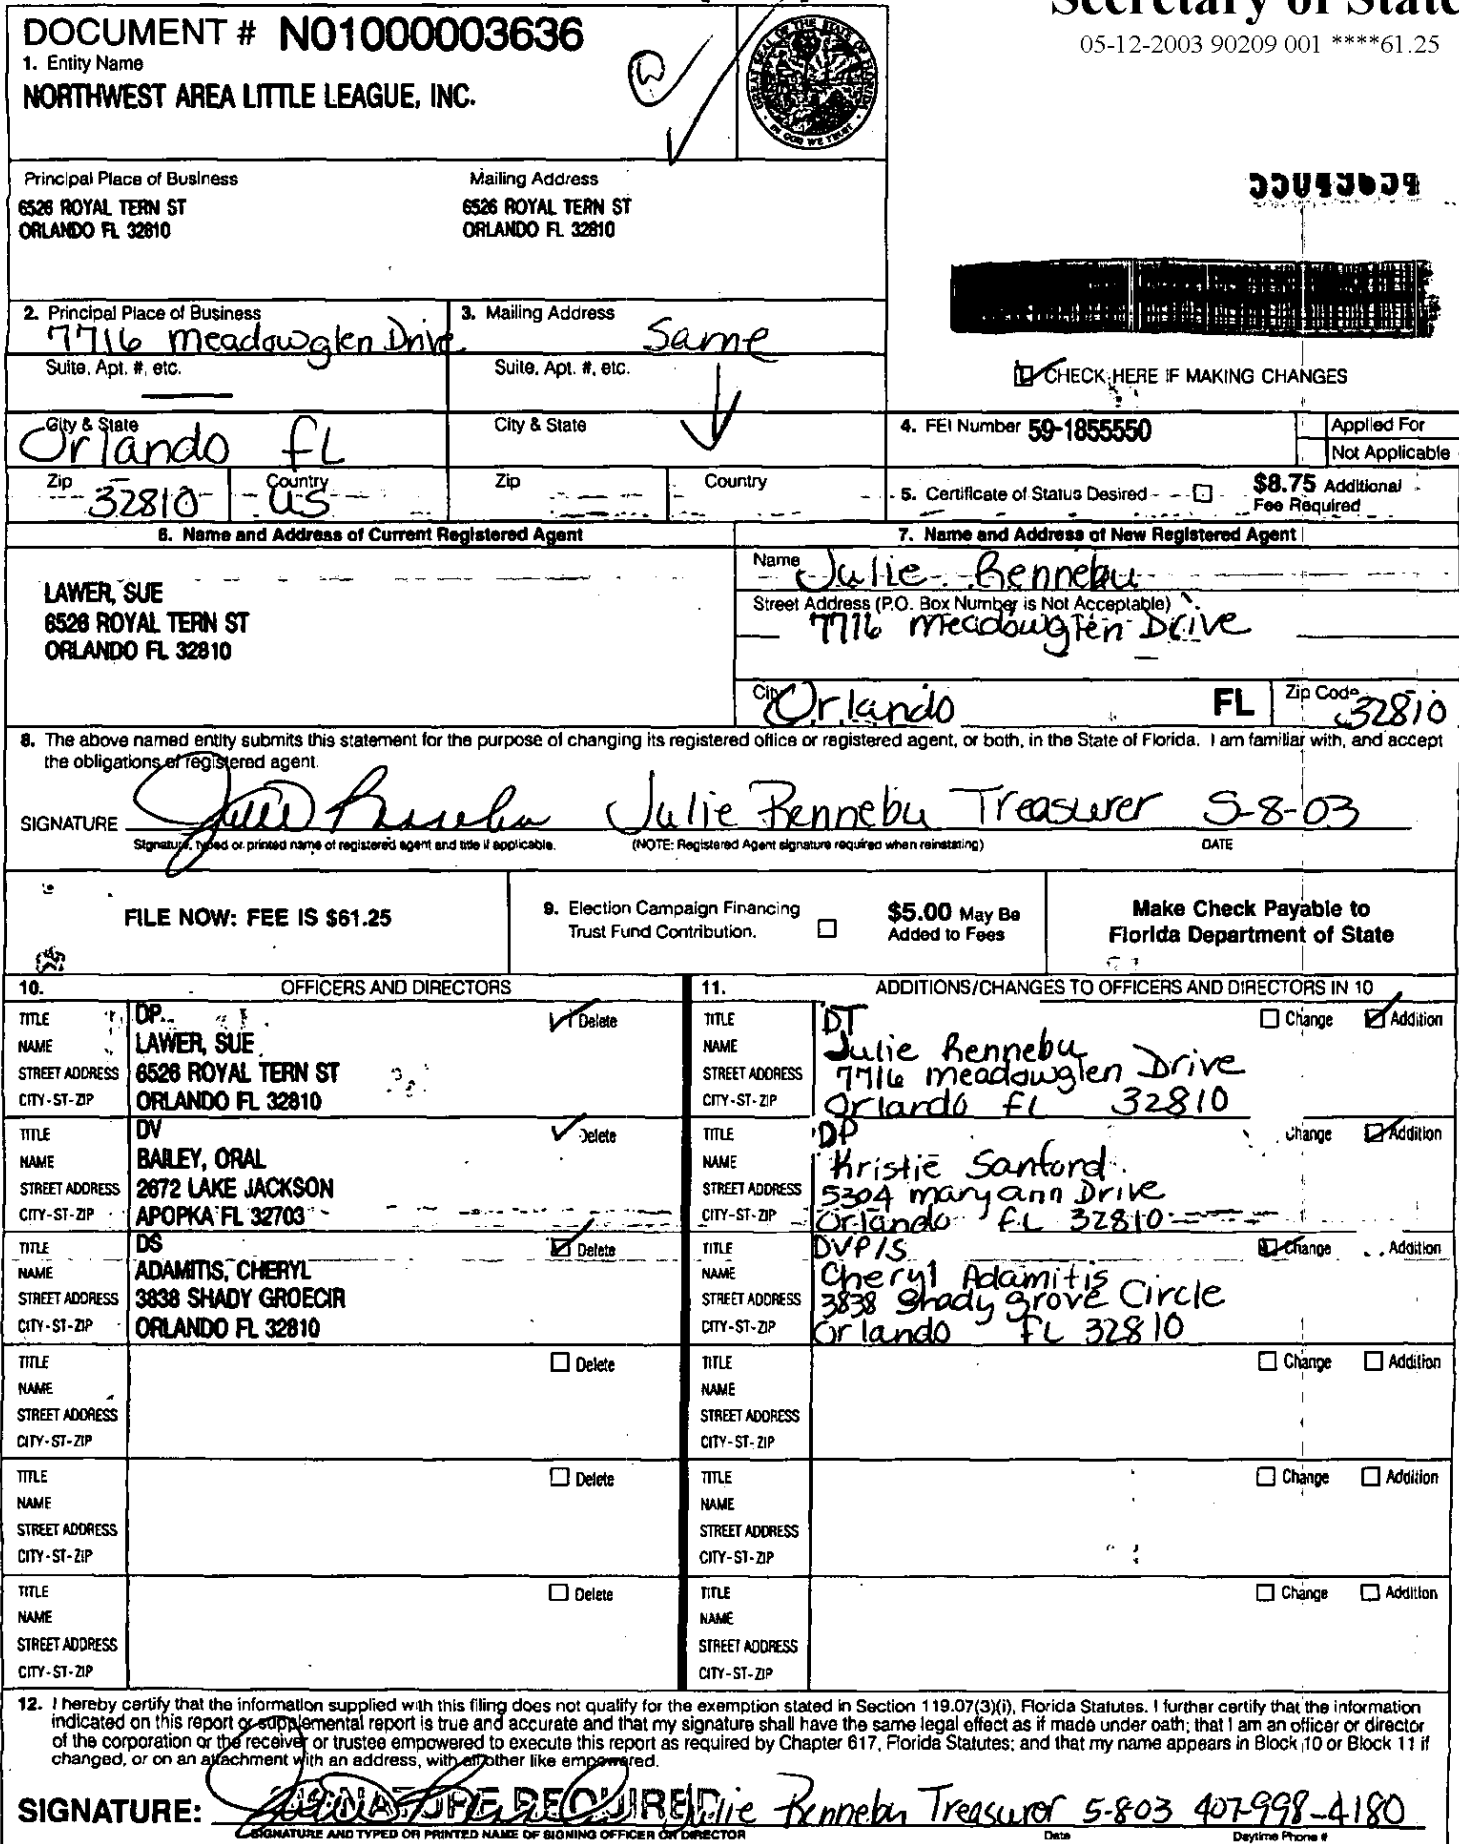 Secretary of State
DOCUMENT # N01000003636
05-12-2003 90209 001 ****61.25
1. Entity Name
NORTHWEST AREA LITTLE LEAGUE, INC.
Principal Place of Business
6526 ROYAL TERN ST
ORLANDO FL 32810
Mailing Address
6526 ROYAL TERN ST
ORLANDO FL 32810
2. Principal Place of Business
7716 Meadowglen Drive
3. Mailing Address
Same
Suite, Apt. #, etc.
Suite, Apt. #, etc.
CHECK HERE IF MAKING CHANGES
City & State
Orlando FL
City & State
4. FEI Number 59-1855550
Applied For
Not Applicable
Zip 32810
Country US
Zip
Country
5. Certificate of Status Desired
$8.75 Additional
Fee Required
6. Name and Address of Current Registered Agent
LAWER, SUE
6526 ROYAL TERN ST
ORLANDO FL 32810
7. Name and Address of New Registered Agent
Name Julie Rennebu
Street Address (P.O. Box Number is Not Acceptable)
7716 Meadowglen Drive
City Orlando FL Zip Code 32810
8. The above named entity submits this statement for the purpose of changing its registered office or registered agent, or both, in the State of Florida. I am familiar with, and accept
the obligations of registered agent.
SIGNATURE Julie Rennebu Treasurer 5-8-03
Signature, typed or printed name of registered agent and title if applicable. (NOTE: Registered Agent signature required when reinstating) DATE
FILE NOW: FEE IS $61.25
9. Election Campaign Financing
Trust Fund Contribution.
$5.00 May Be
Added to Fees
Make Check Payable to
Florida Department of State
10. OFFICERS AND DIRECTORS
TITLE DP Delete
NAME LAWER, SUE
STREET ADDRESS 6526 ROYAL TERN ST
CITY-ST-ZIP ORLANDO FL 32810
TITLE DV Delete
NAME BAILEY, ORAL
STREET ADDRESS 2672 LAKE JACKSON
CITY-ST-ZIP APOPKA FL 32703
TITLE DS Delete
NAME ADAMITIS, CHERYL
STREET ADDRESS 3838 SHADY GROECIR
CITY-ST-ZIP ORLANDO FL 32810
TITLE Delete
NAME
STREET ADDRESS
CITY-ST-ZIP
TITLE Delete
NAME
STREET ADDRESS
CITY-ST-ZIP
TITLE Delete
NAME
STREET ADDRESS
CITY-ST-ZIP
11. ADDITIONS/CHANGES TO OFFICERS AND DIRECTORS IN 10
TITLE DT Change Addition
NAME Julie Rennebu
STREET ADDRESS 7716 Meadowglen Drive
CITY-ST-ZIP Orlando FL 32810
TITLE DP Change Addition
NAME Kristie Sanford
STREET ADDRESS 5304 maryann Drive
CITY-ST-ZIP Orlando FL 32810
TITLE DVP/S Change Addition
NAME Cheryl Adamitis
STREET ADDRESS 3838 Shady Grove Circle
CITY-ST-ZIP Orlando FL 32810
TITLE Change Addition
NAME
STREET ADDRESS
CITY-ST-ZIP
TITLE Change Addition
NAME
STREET ADDRESS
CITY-ST-ZIP
TITLE Change Addition
NAME
STREET ADDRESS
CITY-ST-ZIP
12. I hereby certify that the information supplied with this filing does not qualify for the exemption stated in Section 119.07(3)(i), Florida Statutes. I further certify that the information
indicated on this report or supplemental report is true and accurate and that my signature shall have the same legal effect as if made under oath; that I am an officer or director
of the corporation or the receiver or trustee empowered to execute this report as required by Chapter 617, Florida Statutes; and that my name appears in Block 10 or Block 11 if
changed, or on an attachment with an address, with all other like empowered.
SIGNATURE: SIGNATURE REQUIRED Julie Rennebu Treasuror 5-803 407-998-4180
SIGNATURE AND TYPED OR PRINTED NAME OF SIGNING OFFICER OR DIRECTOR Date Daytime Phone #